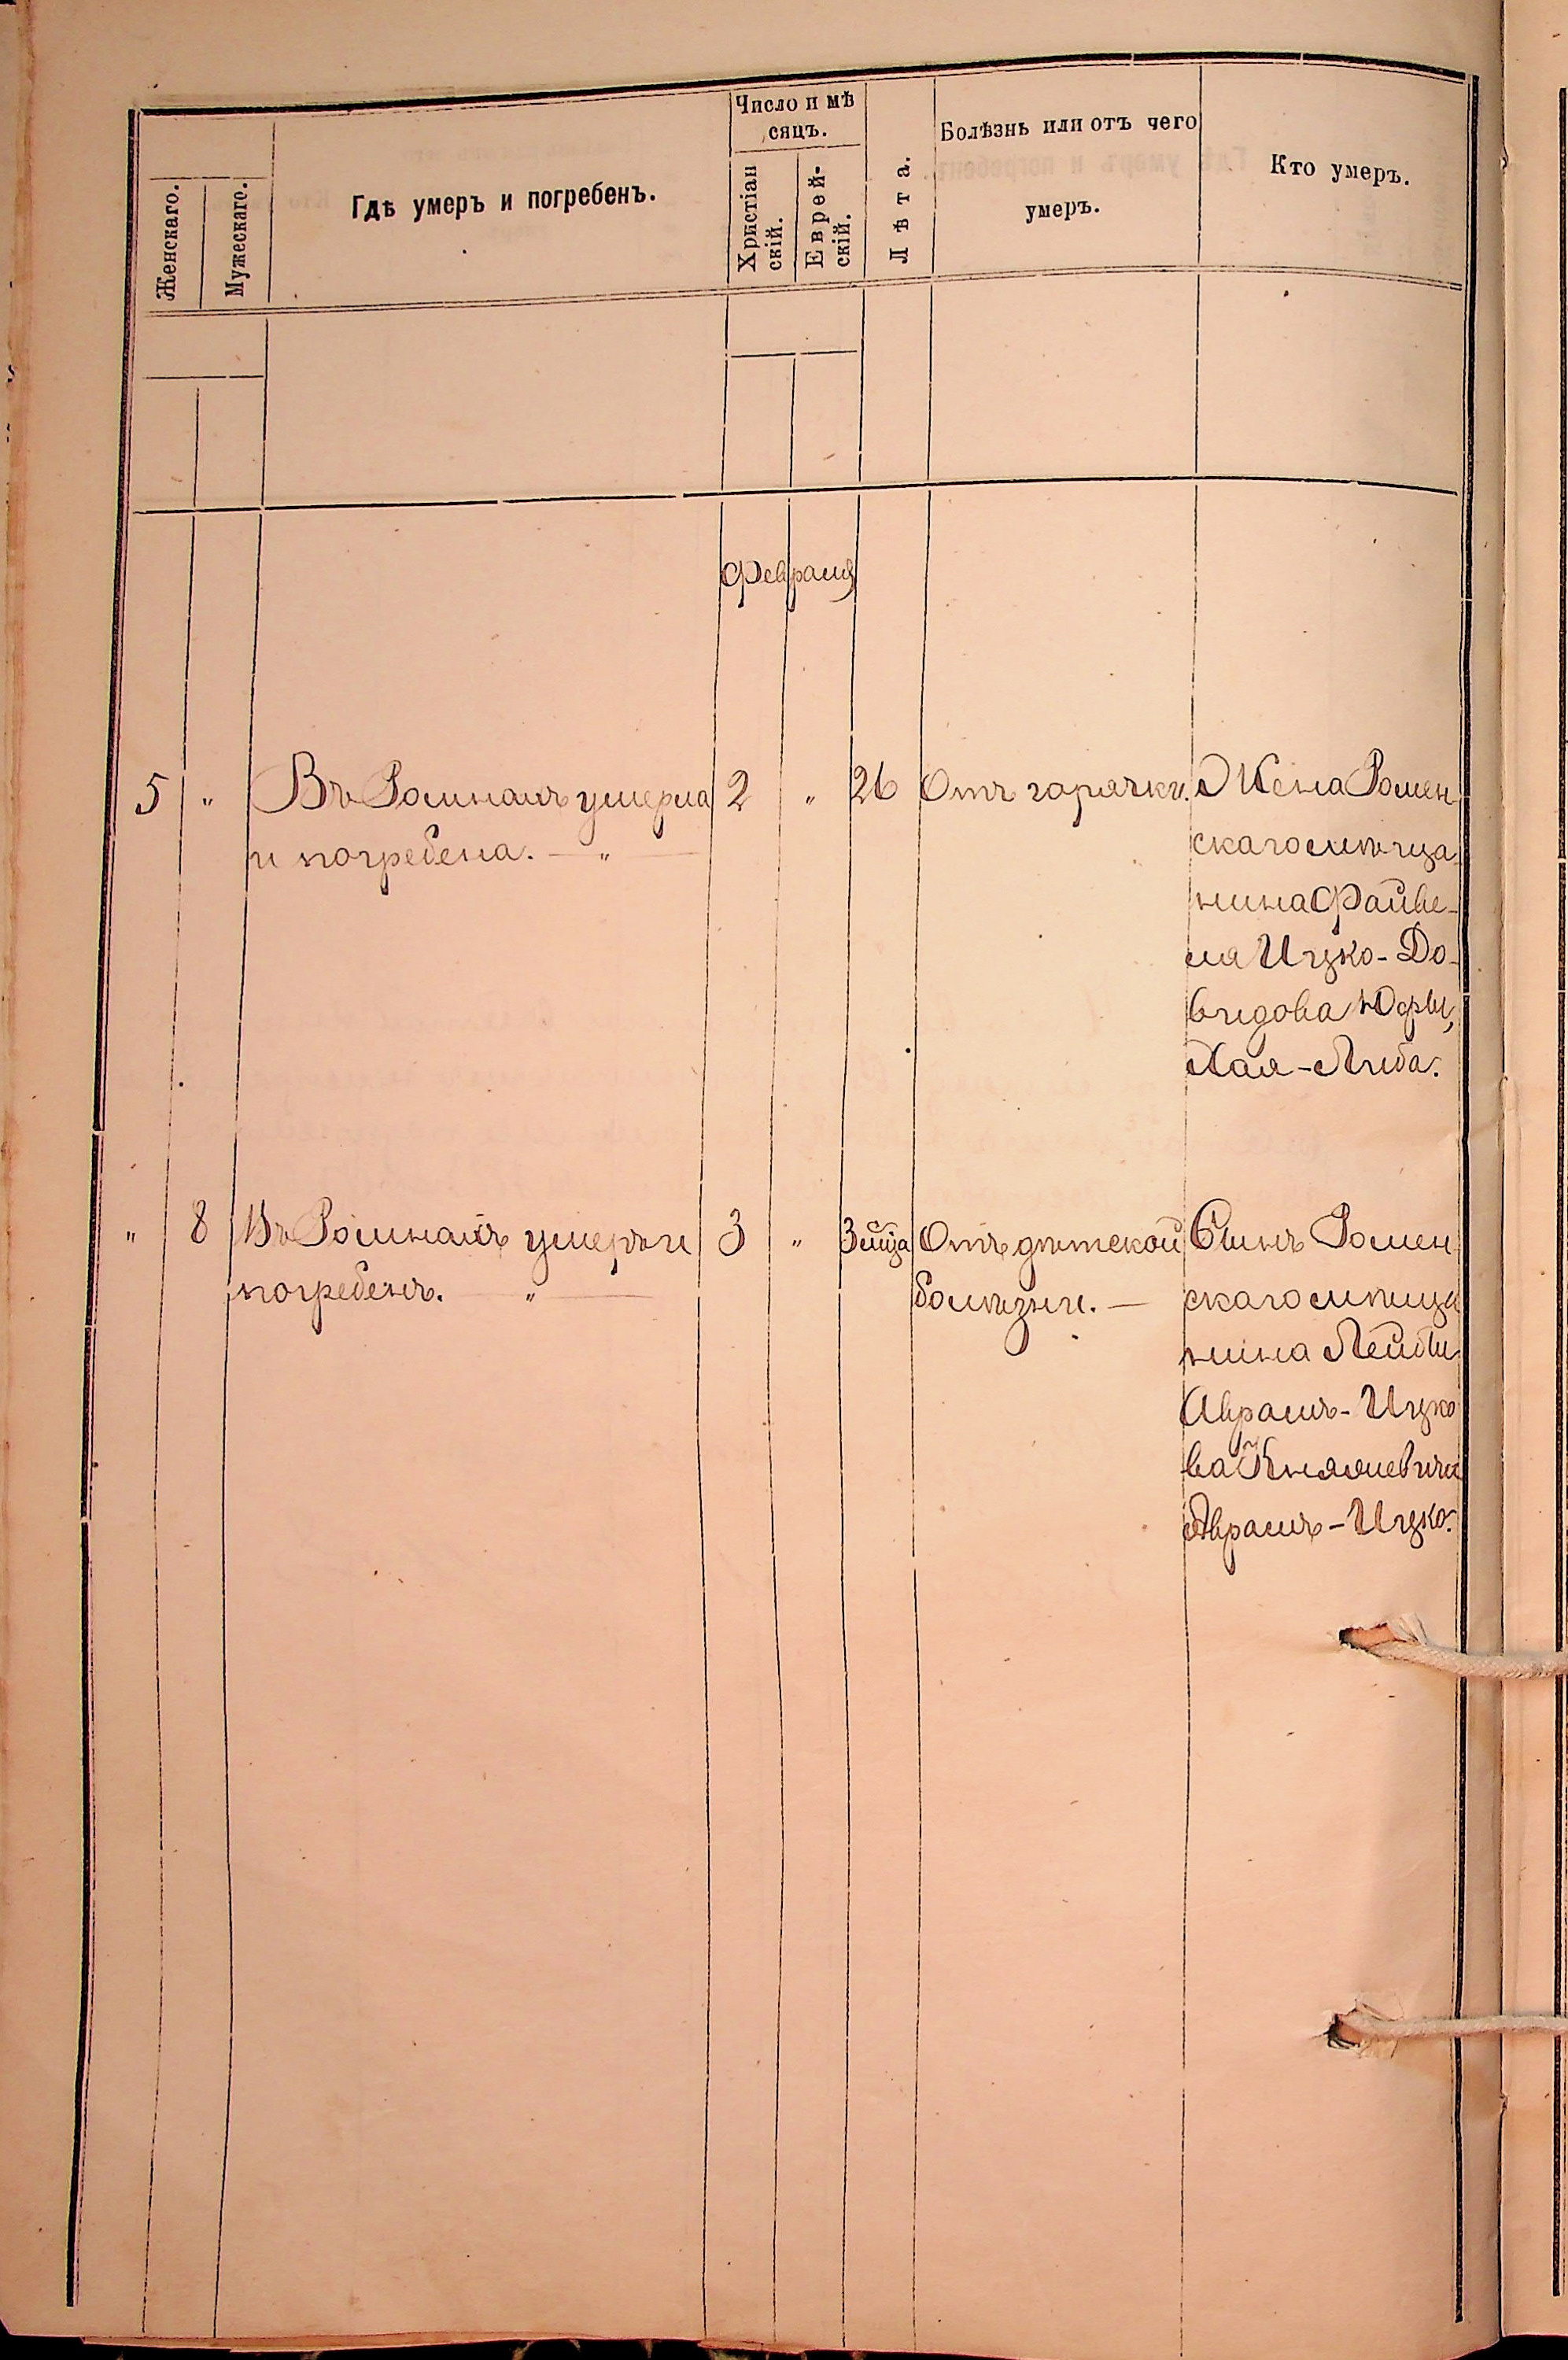 Женскаго.
Мужескаго.
Гдѣ умеръ и погребенъ.
Число и мѣ
сяцъ.
Христіан
скій.
Еврей-
скій.
Лѣта.
Болѣзнь или отъ чего
умеръ.
Кто умеръ.
Февраля
5 " Въ Ромнахъ умерла 2 " 26 Отъ горячки. Жена Ромен-
и погребена. — " — скаго мѣща
нина Файве-
ля Ицко-До-
видова Юфы,
Хая-Либа.
" 8 Въ Ромнахъ умеръ и 3 " 3 мца Отъ дѣтской Сынъ Ромен
погребенъ. — " — болѣзни. — скаго мѣща
нина Лейбы
Аврамъ-Ицко
ва
Аврамъ-Ицко.